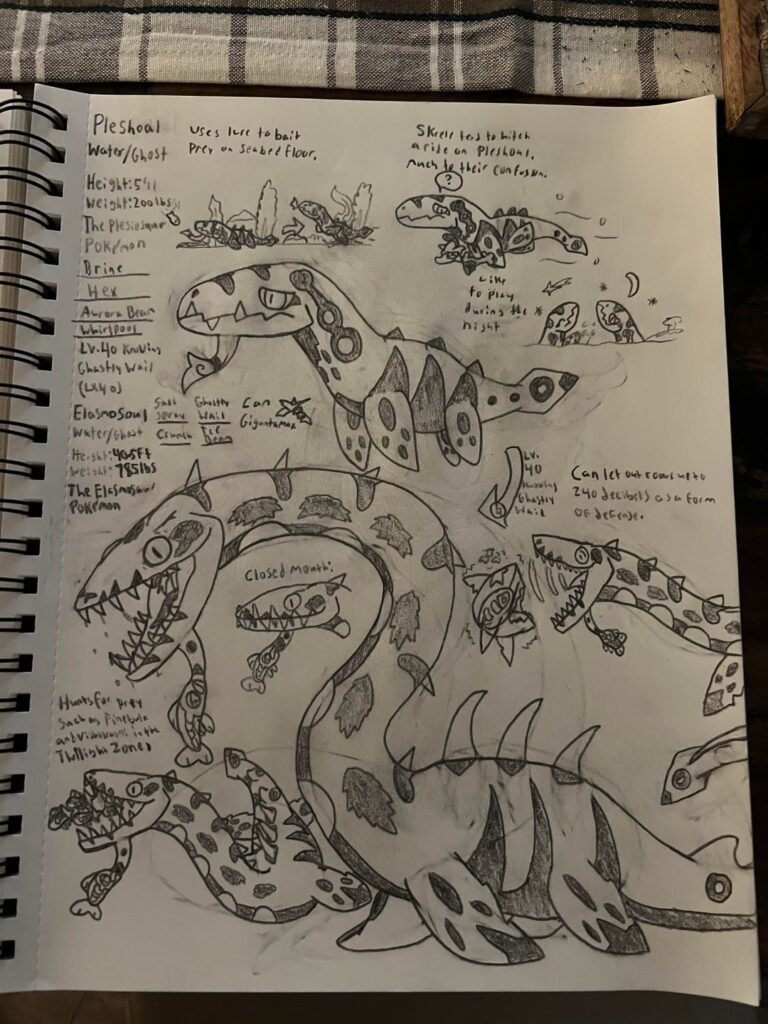 Pleshoal
Water/Ghost
Height: 5'11
Weight: 200lbs
The Plesiosaur
Pokémon
Brine
Hex
Aurora Beam
Whirlpool
Lv.40 Knowing
Ghastly Wail
(Lv.40)
Uses lure to bait
prey on seabed floor.
Skrelp tend to hitch
a ride on Pleshoal,
much to their confusion.
?
Like
to play
during the
night
Elasmosoul
Water/Ghost
Height: 40.5ft
Weight: 785lbs
The Elasmosaur
Pokémon
Salt
Ghastly
Wail
Crunch
Ice
Beam
Can
Gigantamax
Lv.
40
Knowing
Ghastly
Wail
Can let out roars up to
240 decibels as a form
of defense.
Closed mouth:
Hunts for prey
such as Finizen
and in the
Twilight Zone